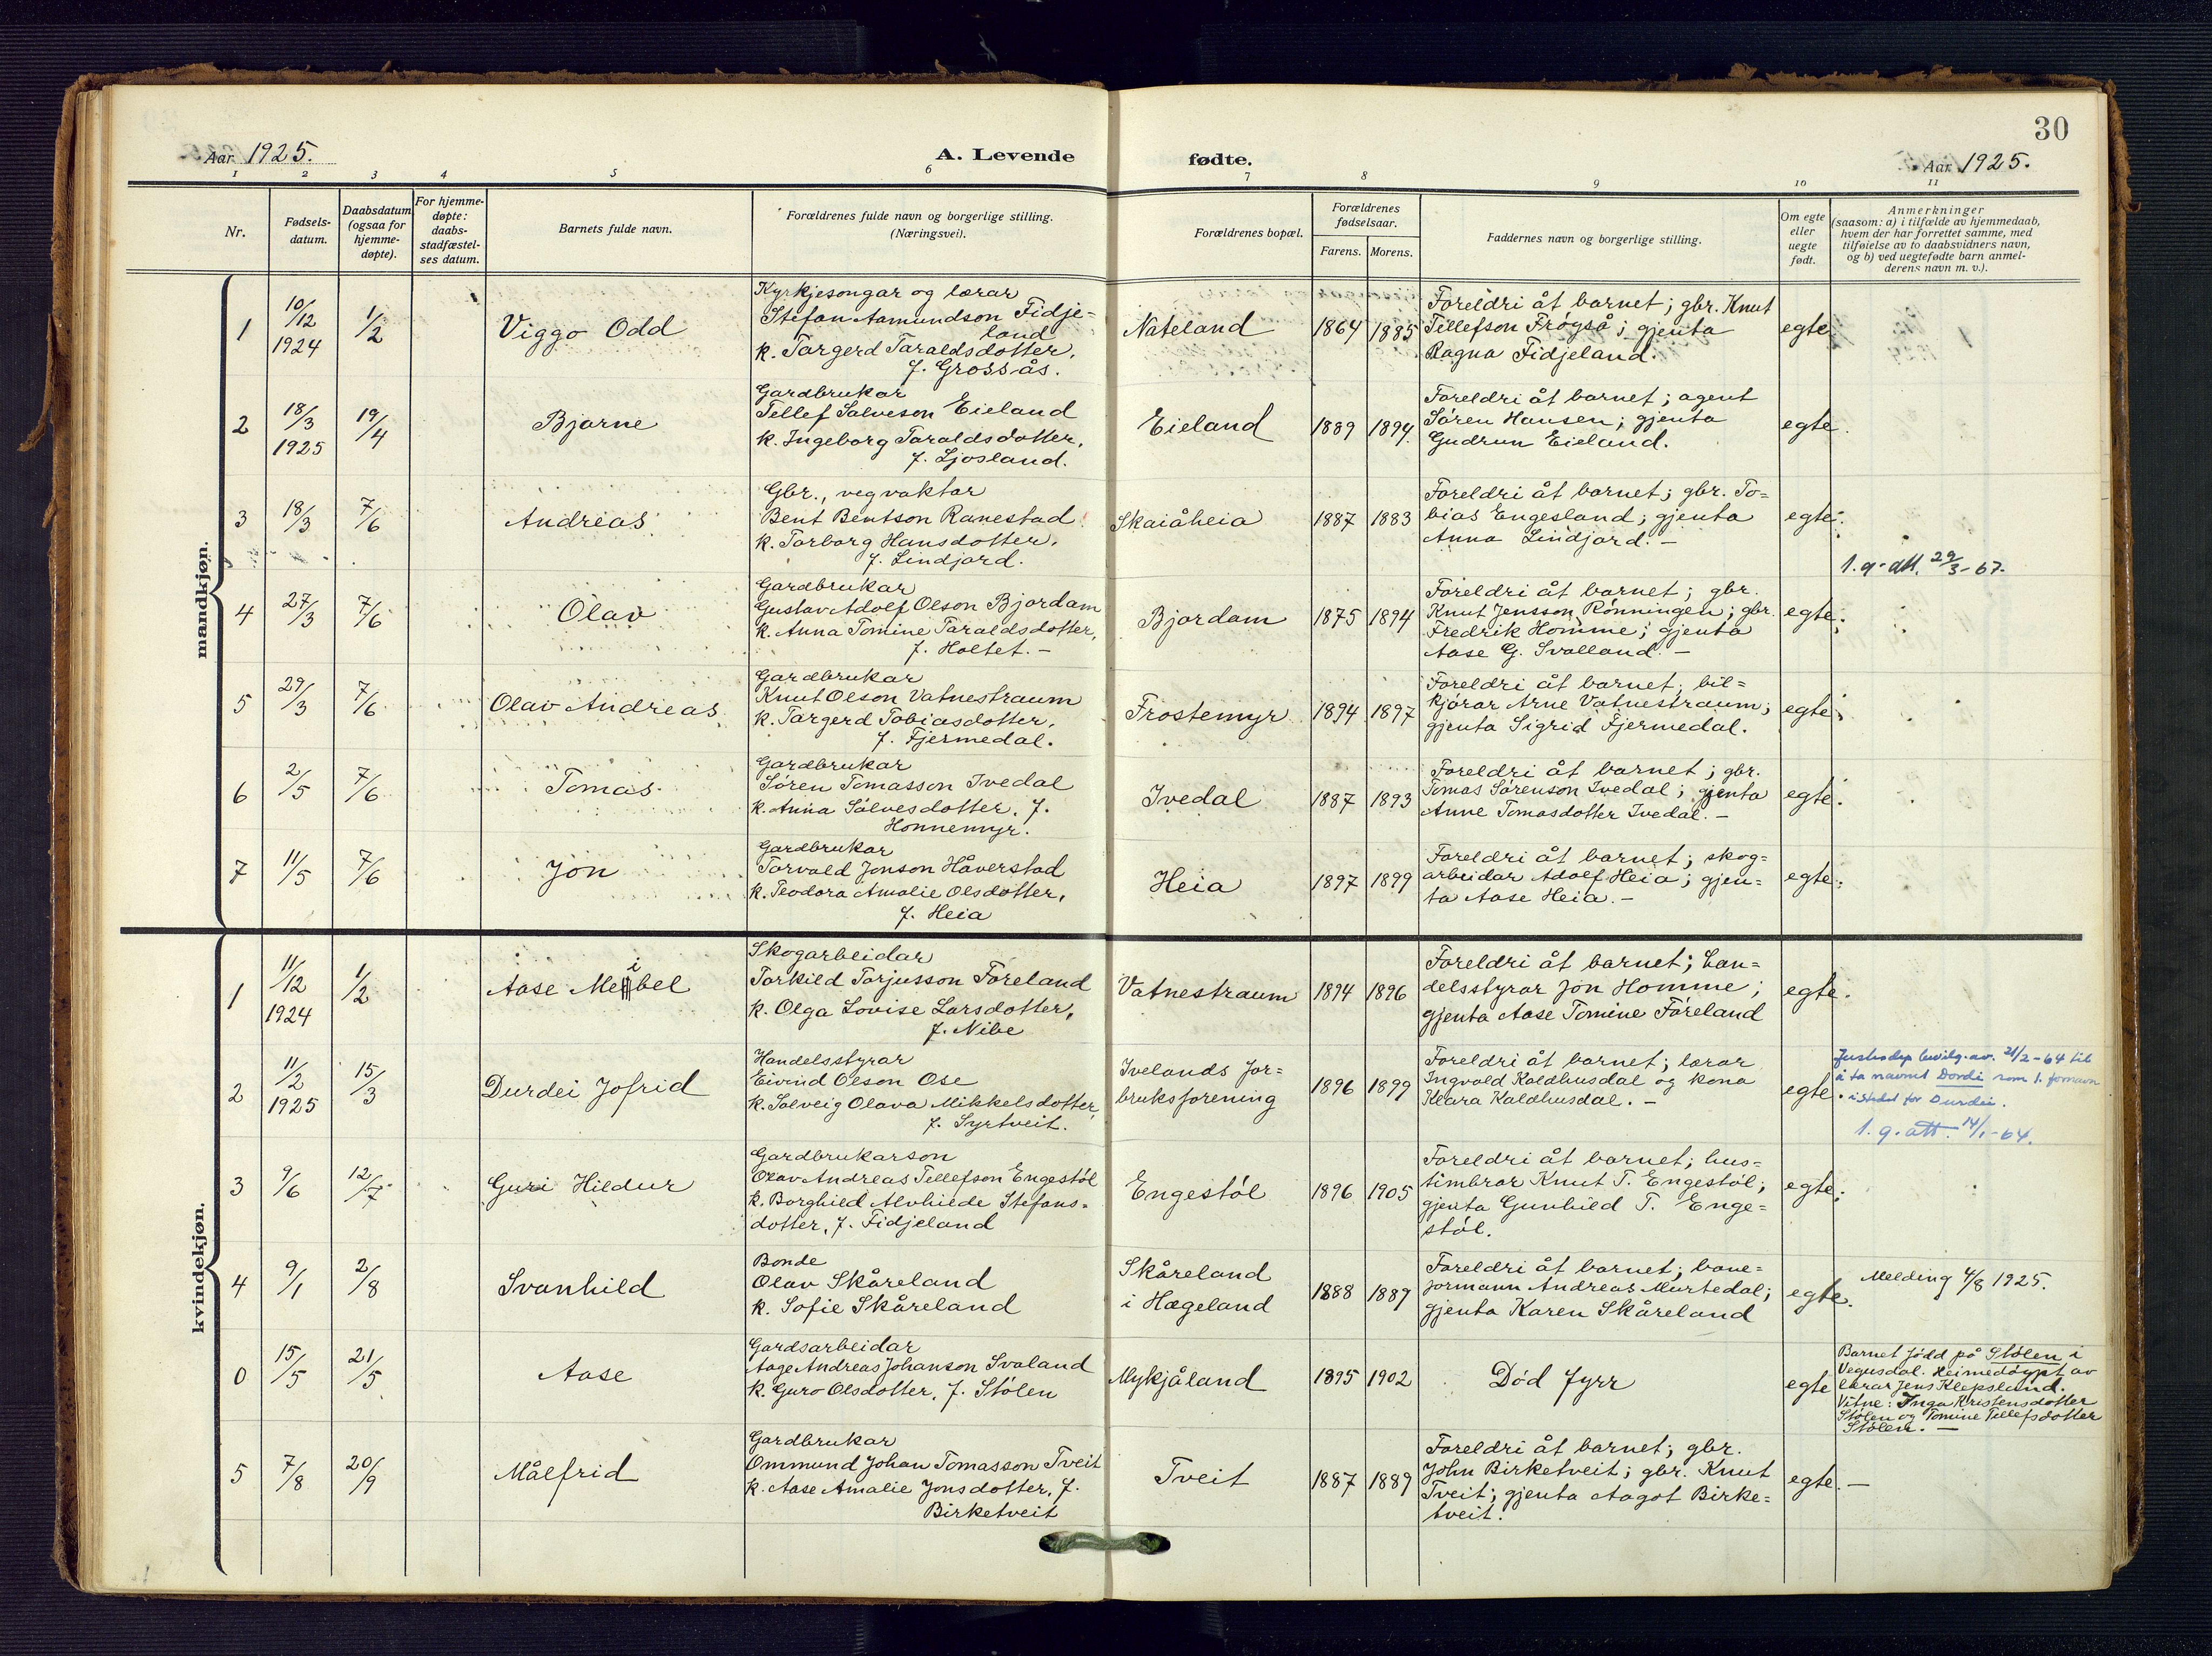 30
Aar 1925.
A. Levende fødte.
Aar 1925.
1 2 3 4 5 6 7 8 9 10 11
Nr.
Fødsels-
datum.
Daabsdatum
(ogsaa for
hjemme-
døpte).
For hjemme-
døpte:
daabs-
stadfæstel-
ses datum.
Barnets fulde navn.
Forældrenes fulde navn og borgerlige stilling.
(Næringsvei).
Forældrenes bopæl.
Forældrenes
fødselsaar.
Farens. Morens.
Faddernes navn og borgerlige stilling.
Om egte
eller
uegte
født.
Anmerkninger
(saasom: a) i tilfælde av hjemmedaab,
hvem der har forrettet samme, med
tilføielse av to daabsvidners navn,
og b) ved uegtefødte barn anmel-
derens navn m. v.).
mandkjøn.
1
10/12
1924
1/2
Viggo Odd
Kyrkjesongar og lærar
Stefan Aamundson Fidje=
land
k. Targerd Taraldsdotter,
f. Grossås.
Nateland
1864
1885
Foreldri åt barnet; gbr. Knut
Tellefson Frøyså; gjenta
Ragna Fidjeland.
egte
2
18/3
1925
19/4
Bjarne
Gardbrukar
Tellef Salveson Eieland
k. Ingeborg Taraldsdotter,
f. Ljosland.
Eieland
1889
1894
Foreldri åt barnet; agent
Søren Hansen; gjenta
Gudrun Eieland.
egte.
3
18/3
7/6
Andreas
Gbr., vegvaktar
Bent Bentson Ranestad
k. Torborg Hansdotter,
f. Lindjord.
Skaiåheia
1887
1883
Foreldri åt barnet; gbr. To=
bias Engesland; gjenta
Anna Lindjord. –
egte.
4
27/3
7/6
Olav
Gardbrukar
Gustav Adolf Olson Bjordam
k. Anna Tomine Taraldsdotter,
f. Holtet. –
Bjordam
1875
1894
Foreldri åt barnet; gbr.
Knut Jensson Rønningen; gbr.
Fredrik Homme; gjenta
Aase G. Svalland. –
egte.
1.g. att. 29/3-67.
5
29/3
7/6
Olav Andreas
Gardbrukar
Knut Olson Vatnestraum
k. Targerd Tobiasdotter,
f. Fjermedal.
Frostemyr
1894
1897
Foreldri åt barnet; bil=
kjørar Arne Vatnestraum;
gjenta Sigrid Fjermedal.
egte
6
2/5
7/6
Tomas
Gardbrukar
Søren Tomasson Ivedal
k. Anna Sølvesdotter, f.
Honnemyr.
Ivedal
1887
1893
Foreldri åt barnet; gbr.
Tomas Sørenson Ivedal; gjenta
Anne Tomasdotter Ivedal. –
egte.
7
11/5
7/6
Jon
Gardbrukar
Torvald Jonson Håverstad
k. Teodora Amalie Olsdotter,
f. Heia
Heia
1897
1899
Foreldri åt barnet; skog=
arbeidar Adolf Heia; gjen=
ta Aase Heia. –
egte.
kvindekjøn.
1
11/12
1924
1/2
Aase Meibel
Skogarbeidar
Torkild Torjusson Føreland
k. Olga Lovise Larsdotter,
f. Nibe
Vatnestraum
1894
1896
Foreldri åt barnet; han=
delsstyrar Jon Homme;
gjenta Aase Tomine Føreland
egte.
2
11/2
1925
15/3
Durdei Jofrid
Handelsstyrar
Eivind Olson Ose
k. Solveig Olava Mikkelsdotter,
f. Syrtveit.
Ivelands for=
bruksforening
1896
1899
Foreldri åt barnet; lærar
Ingvald Kaldhusdal og kona
Klara Kaldhusdal. –
egte.
Justisdep. bevilg. av. 21/2-64 til
å ta navnet Dordi som 1. fornavn
istedet for Durdei.
1.g. att. 14/1-64.
3
9/6
12/7
Guri Hildur
Gardbrukarson
Olav Andreas Tellefson Engestøl
k. Borghild Alvhilde Stefans=
dotter, f. Fidjeland
Engestøl
1896
1905
Foreldri åt barnet; hus=
timbrar Knut T. Engestøl;
gjenta Gunhild T. Enge=
støl.
egte.
4
9/1
2/8
Svanhild
Bonde
Olav Skåreland
k. Sofie Skåreland
Skåreland
i Hægeland
1888
1887
Foreldri åt barnet; bane=
formann Andreas Murtedal;
gjenta Karen Skåreland
egte.
Melding 4/8 1925.
0
15/5
21/5
Aase
Gardsarbeidar
Aage Andreas Johanson Svaland
k. Guro Olsdotter, f. Stølen
Mykjåland
1895
1902
Død fyrr
egte
Barnet fødd på Stølen i
Vegusdal. Heimedøypt av
lærar Jens Klepsland.
Vitne: Inga Kristensdotter
Stølen og Tomine Tellefsdotter
Stølen. –
5
7/8
20/9
Målfrid
Gardbrukar
Ommund Johan Tomasson Tveit
k. Aase Amalie Jonsdotter, f.
Birketveit
Tveit
1887
1889
Foreldri åt barnet; gbr.
John Birketveit; gbr. Knut
Tveit; gjenta Aagot Birke=
tveit.
egte. –